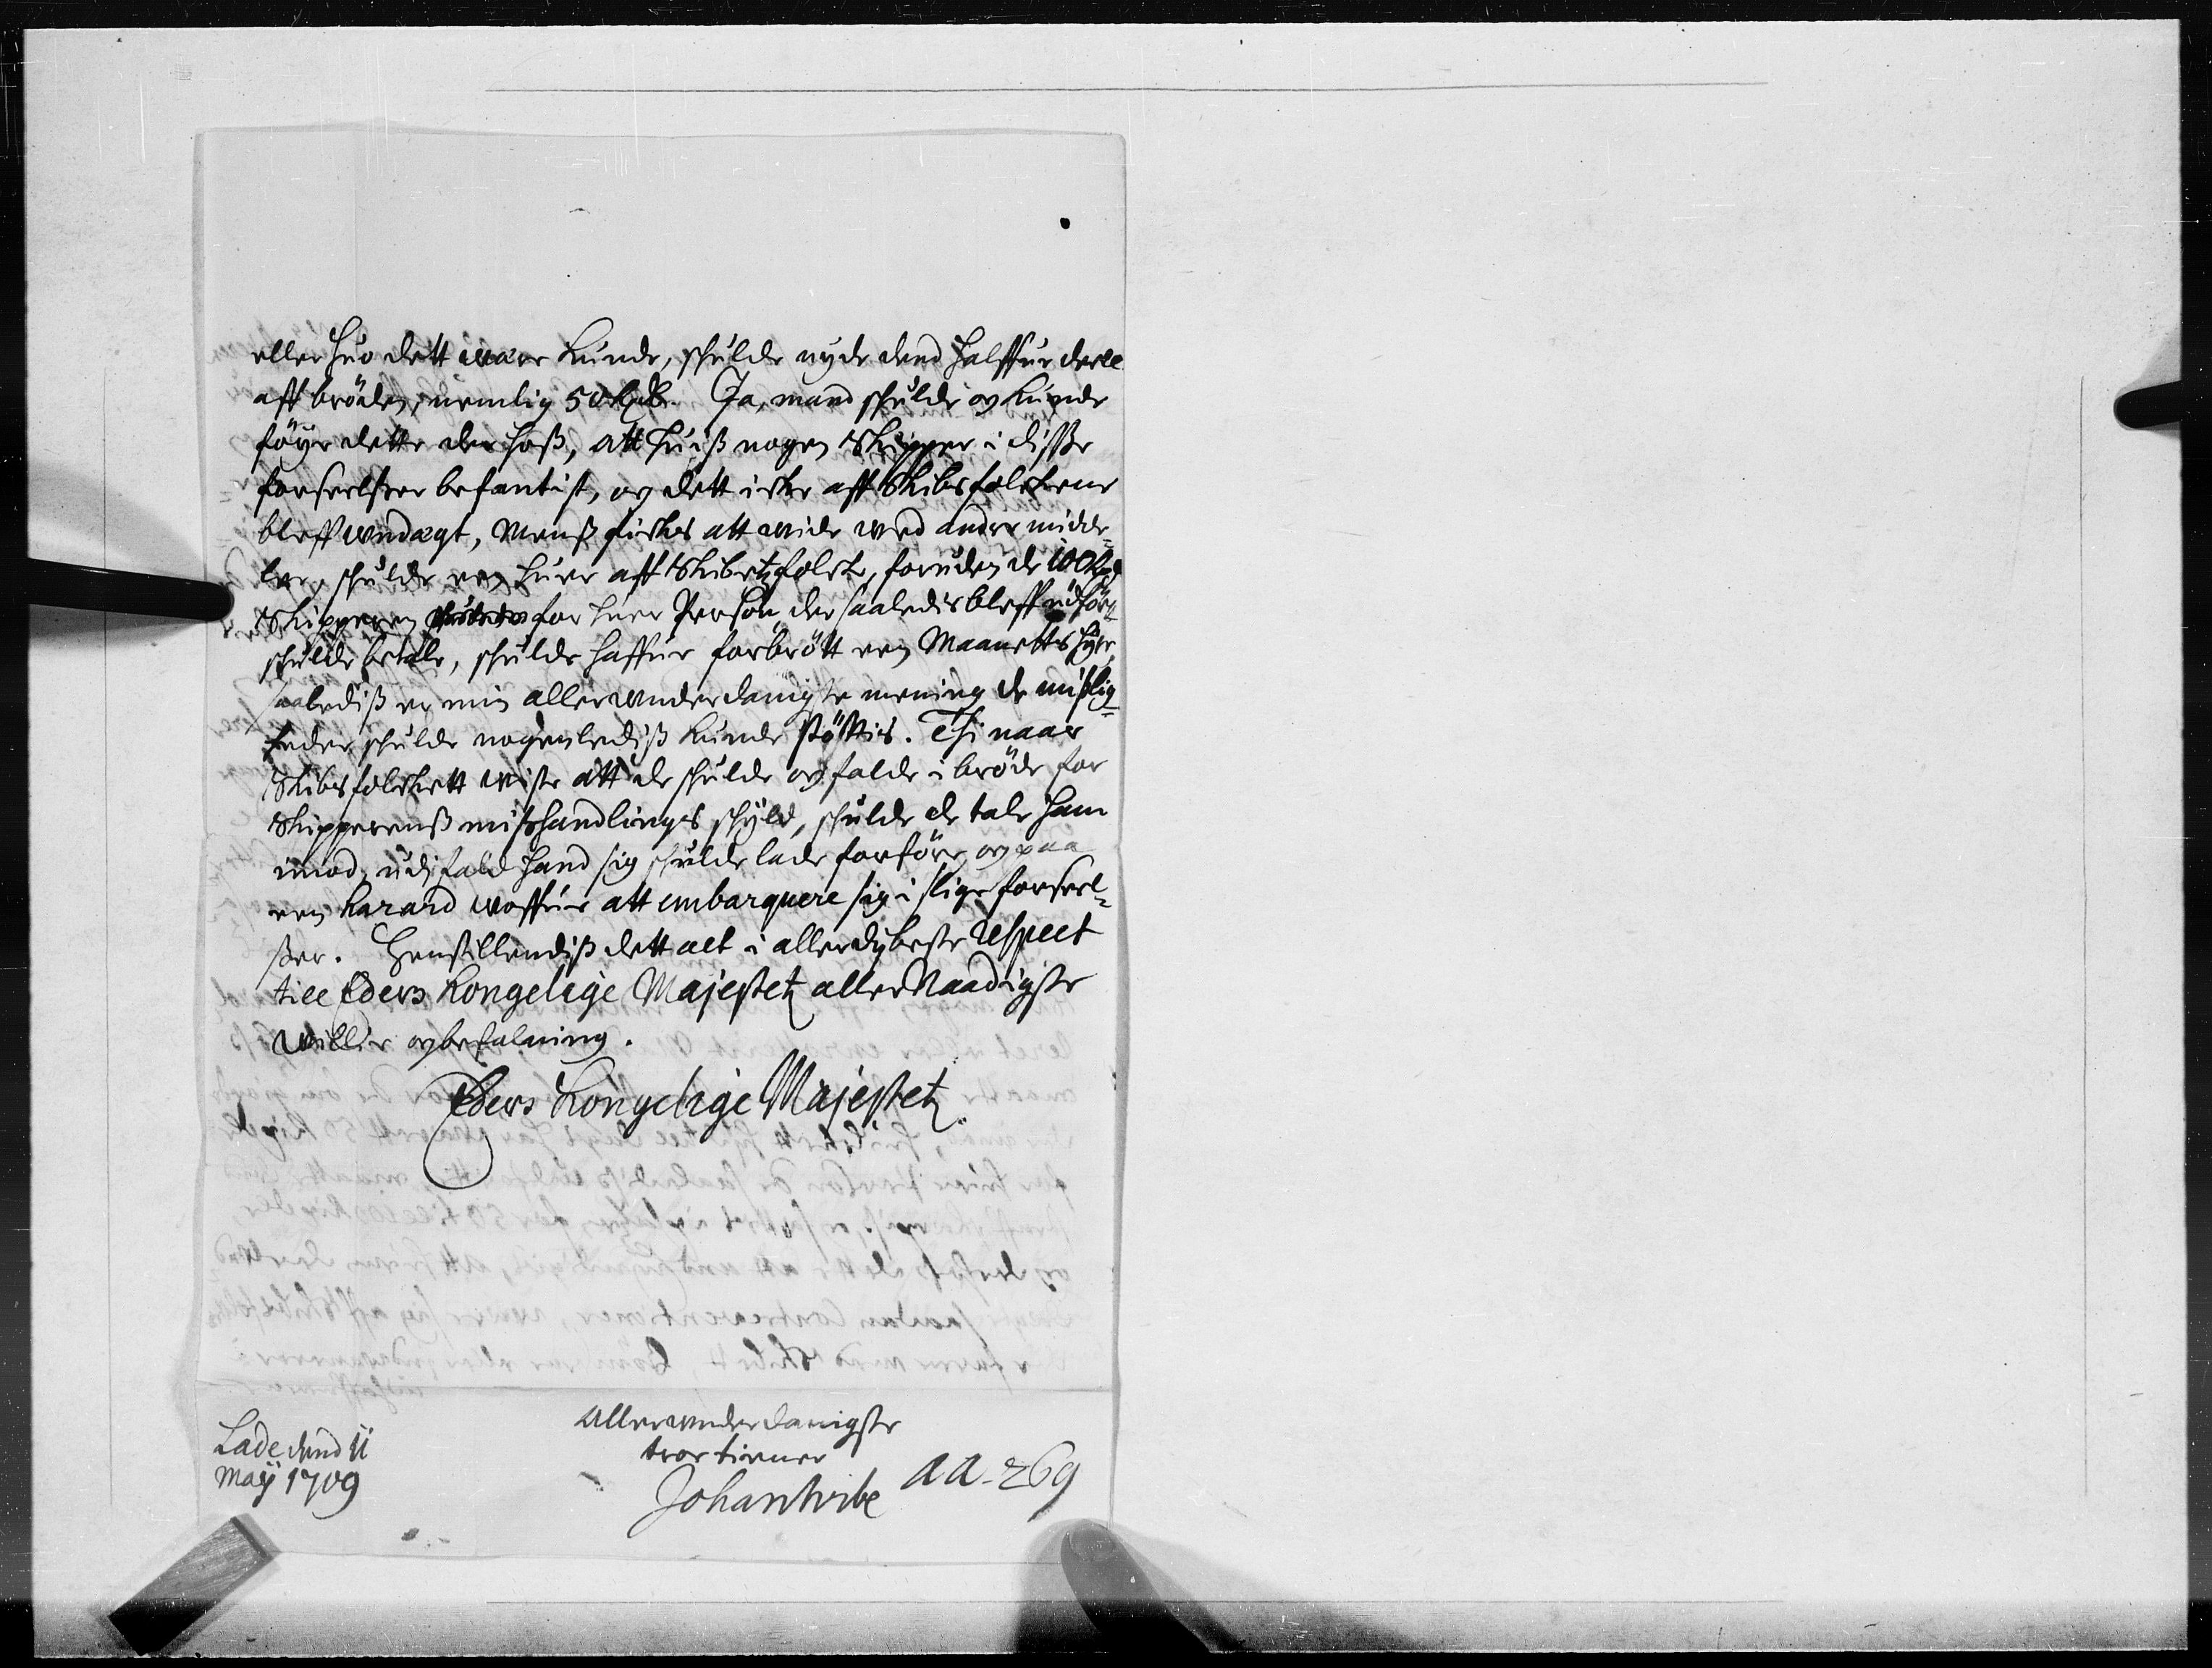 eller huo dett wære kunde, schulde nyde dend halffue deell
aff bröden, nemlig 50 Rdr. Ja, mand schulde og kunde
föye dette der hoß, att huiß nogen Skipper i disse
forseelßer befantist, og dett icke aff Skibsfolckene
bleff undægt, Menß fickes att wide wed andre midde=
ler, schulde een huer aff Skibetzfolck, foruden de 100 Rdr
Skipperen for huer Person der saaledis bleff udför
schulde betale, schulde haffue forbrött een Maanetts hyre,
saalediß er min allerunderdanigste mening de mißlig=
heder schulde nogenlediß kunde stöttis. Thi naar
Skibsfolckett wiste att de schulde og falde i bröde for
Skipperenß mißhandlings schyld, schulde de tale ham
imod, udj fald hand sig schulde lade forföre og paa
een hazard woffue att embarquere sig i slige forseel=
ßer. Henstillendiß dett alt i allerdybeste respect
till Eders Kongelige Majestetz allerNaadigste
willie og befalning.
Eders Kongelige Majestetz
Allerunderdanigste
troe tiener
Johan Wibe
Lade dend 11
Maÿ 1709
AA-269